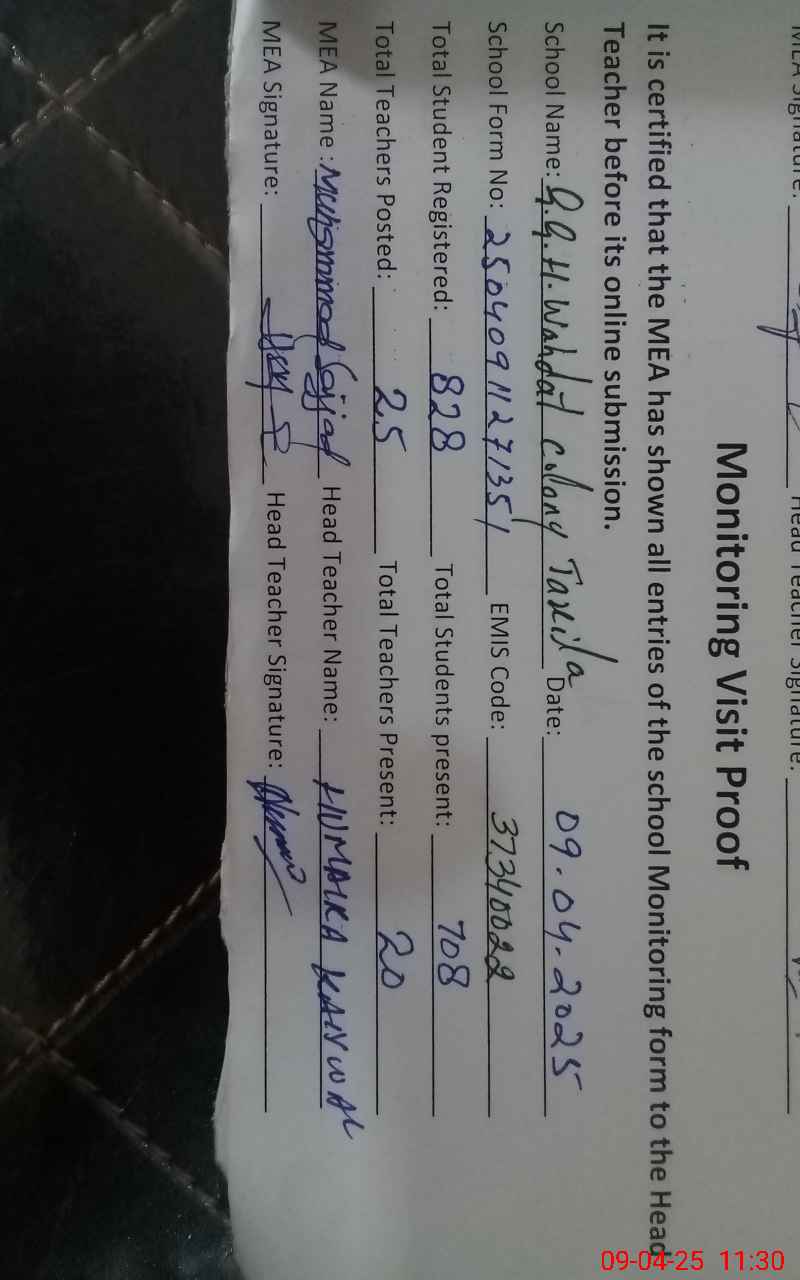 MEA Signature: Head Teacher Signature:
Monitoring Visit Proof
It is certified that the MEA has shown all entries of the school Monitoring form to the Head
Teacher before its online submission.
School Name: G.G.H.Wahdat colony Taxila Date: 09.04.2025
School Form No: 25040911271351 EMIS Code: 37340022
Total Student Registered: 828 Total Students present: 708
Total Teachers Posted: 25 Total Teachers Present: 20
MEA Name: Muhammad Sajjad Head Teacher Name: HUMAIRA KANWAL
MEA Signature: Head Teacher Signature:
09-04-25 11:30